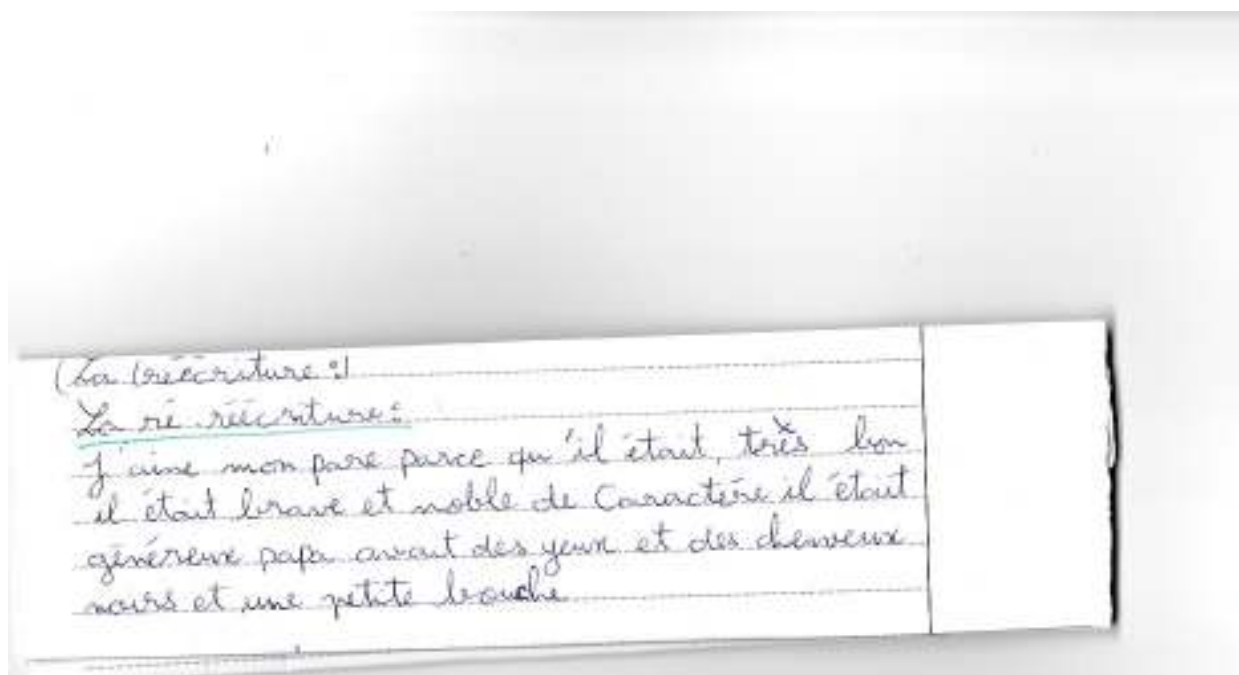 (La (réécriture :)
La ré réécriture :
J'aime mon pare parce qu'il était, très bon
il était brave et noble de Caractère il était
généreux papa avait des yeux et des chenveux
noirs et une petite bouche